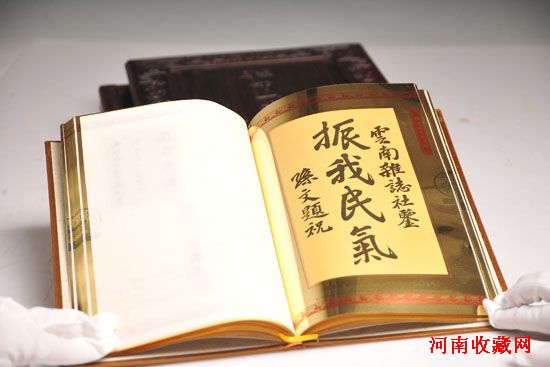 雲南雜誌社鑒
振我民氣
孫文題祝
河南收藏网